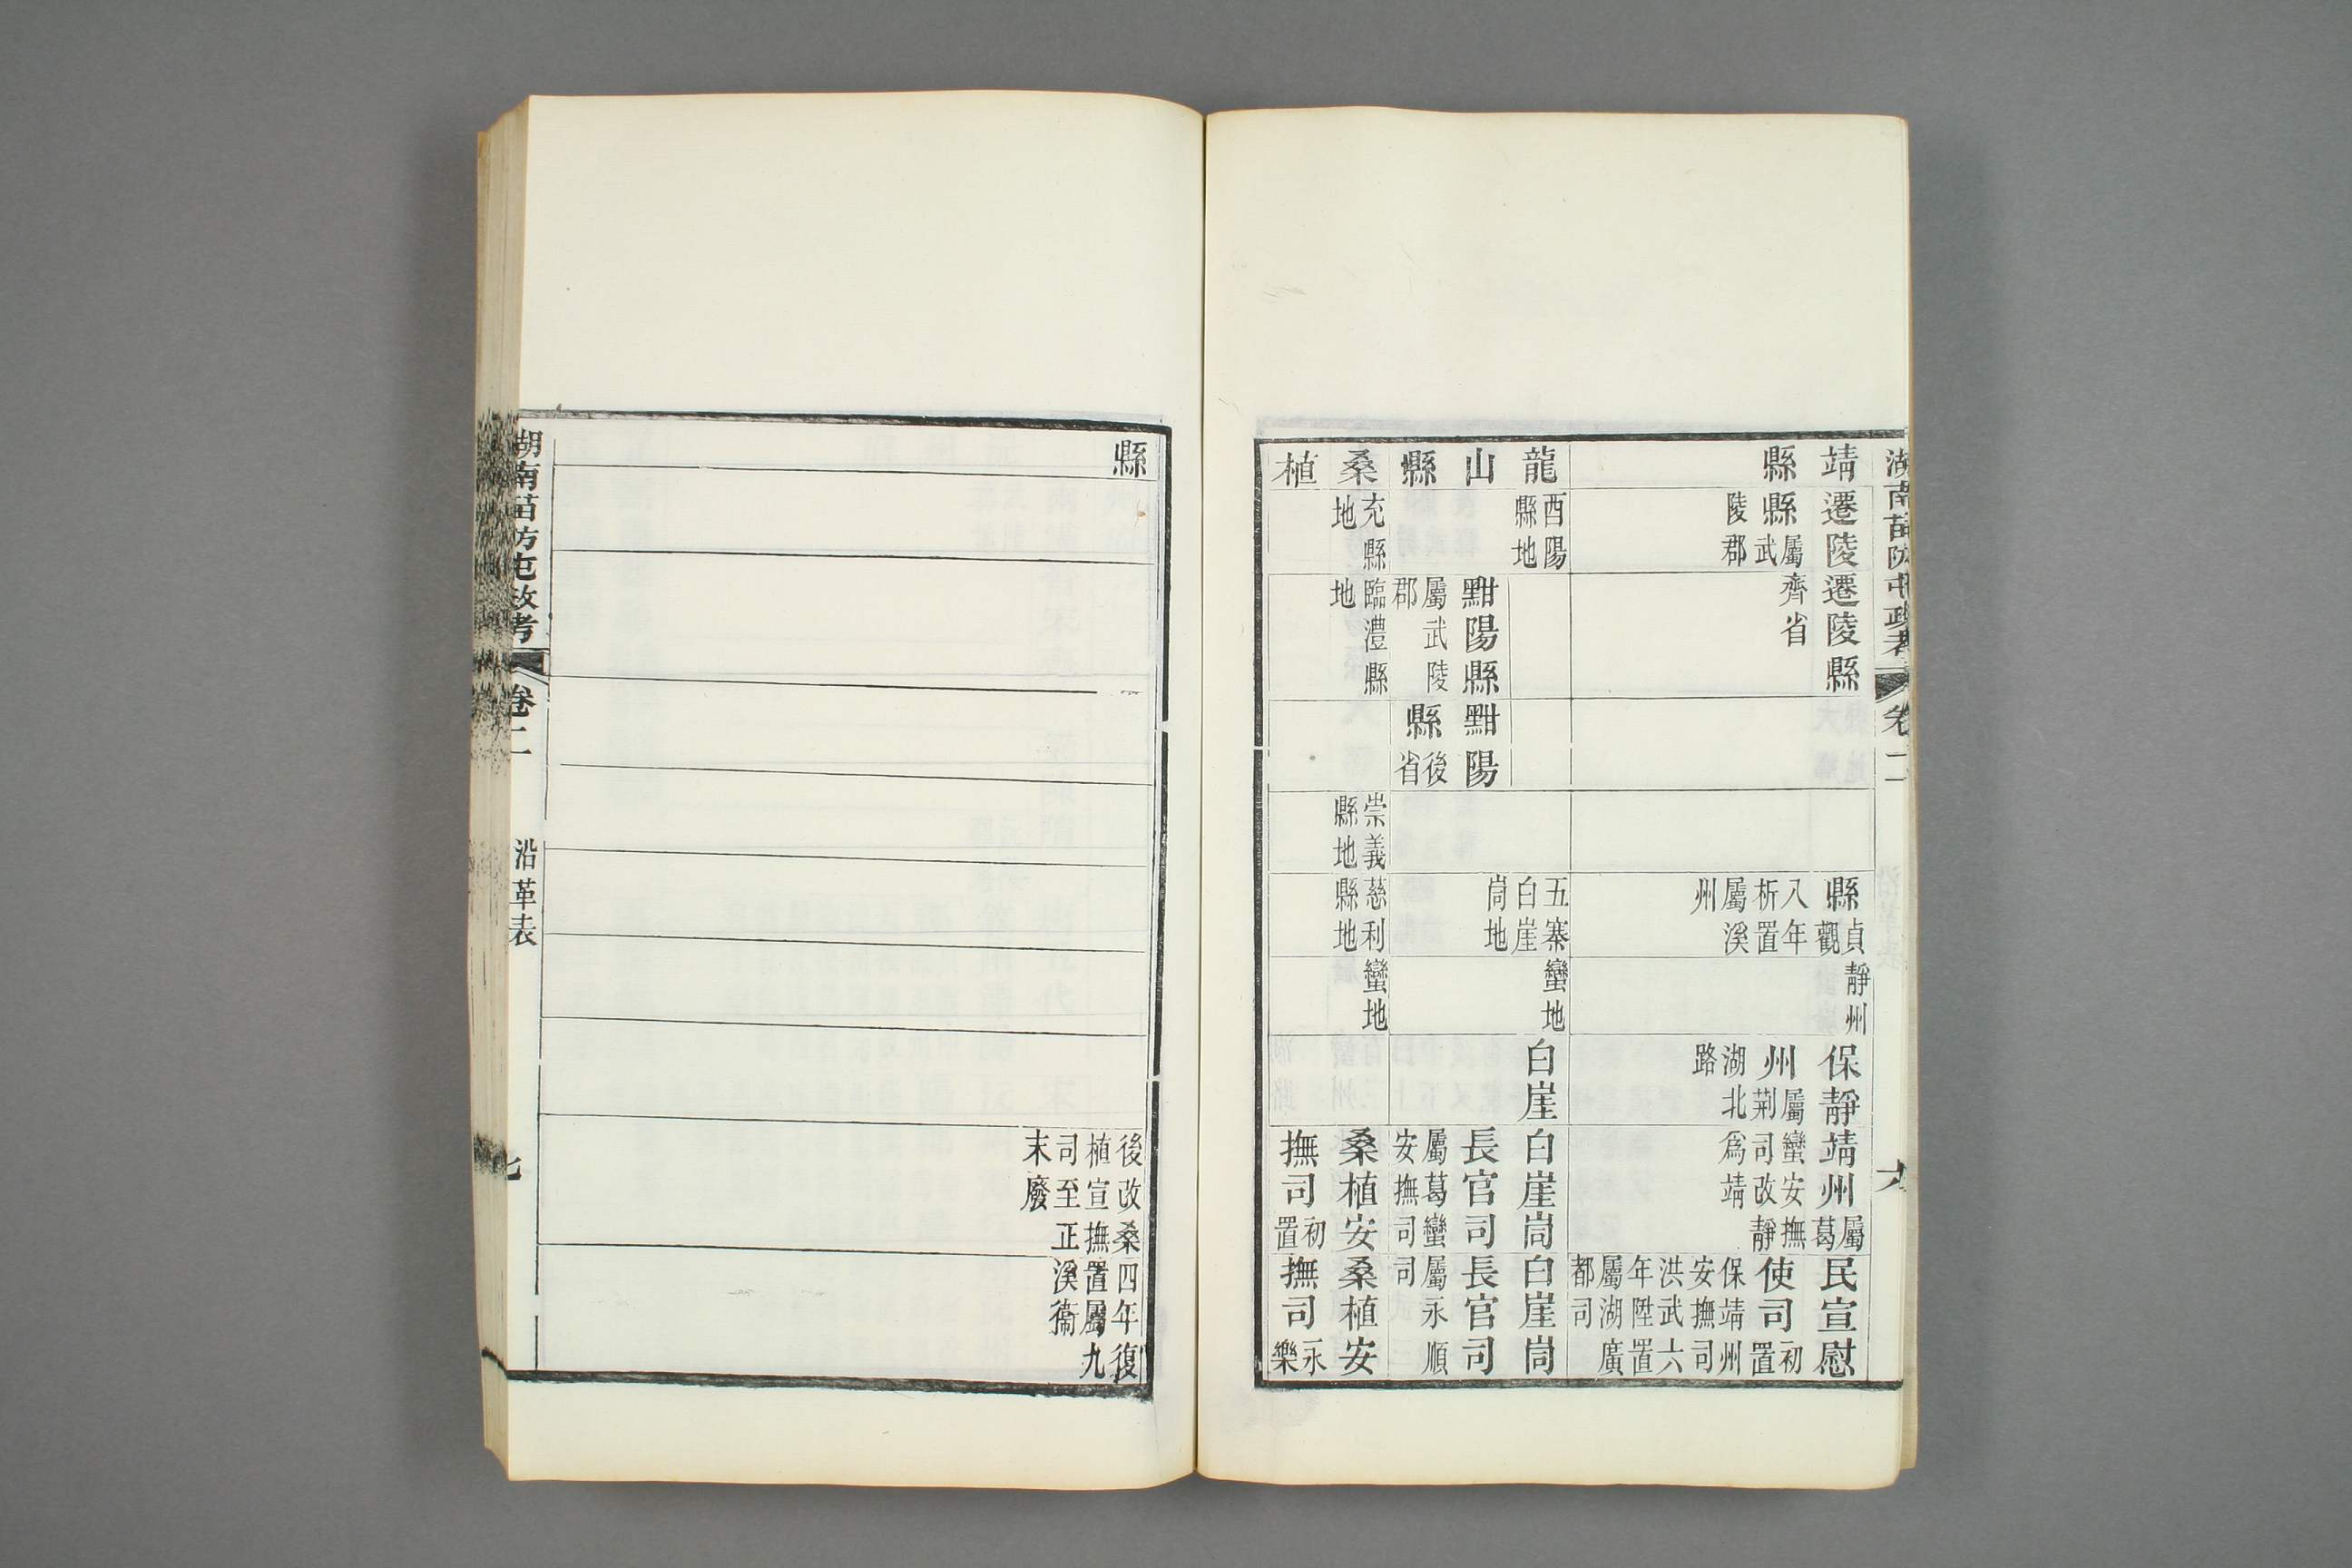 湖南苗防屯政考
卷二
靖縣
遷陵縣屬武陵郡
遷陵縣齊省
縣貞觀八年析置屬溪州
靜州
保靜州屬荆湖北路
靖州屬葛蠻安撫司改靜爲靖
民宣慰使司初置保靖州安撫司洪武六年陞置屬湖廣都司
龍山縣
酉陽縣地
黚陽縣屬武陵郡
黚陽縣後省
五寨白崖峝地
蠻地
白崖
白崖峝長官司屬葛蠻安撫司
白崖峝長官司屬永順司
桑植
充縣地
臨澧縣地
崇義縣地
慈利縣地
蠻地
桑植安撫司初置
桑植安撫司永樂
縣
後改桑植宣撫司至正末廢
四年復置屬九溪衞
湖南苗防屯政考
卷二
沿革表
七